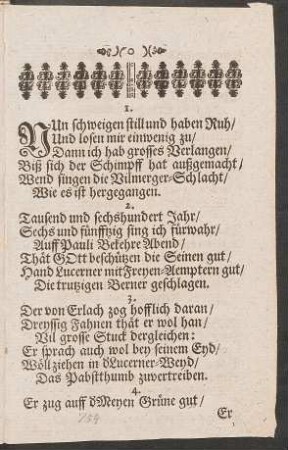 1.
NUn schweigen still und haben Ruh/
Und losen mir einwenig zu/
Dann ich hab grosses Verlangen/
Biß sich der Schimpff hat außgemacht/
Wend singen die Vilmerger-Schlacht/
Wie es ist hergegangen.
2.
Tausend und sechshundert Jahr/
Sechs und fünfftzig sing ich fürwahr/
Auff Pauli Bekehre Abend/
Thät GOtt beschützen die Seinen gut/
Hand Lucerner mit Freyen-Aemptern gut/
Die trutzigen Berner geschlagen.
3.
Der von Erlach zog hofflich daran/
Dreyssig Fahnen thät er wol han/
Vil grosse Stuck dergleichen:
Er sprach auch wol bey seinem Eyd/
Wöll ziehen in dLucerner-Weyd/
Das Pabstthumb zuvertreiben.
4.
Er zug auff dMeyen Grüne gut/
Er